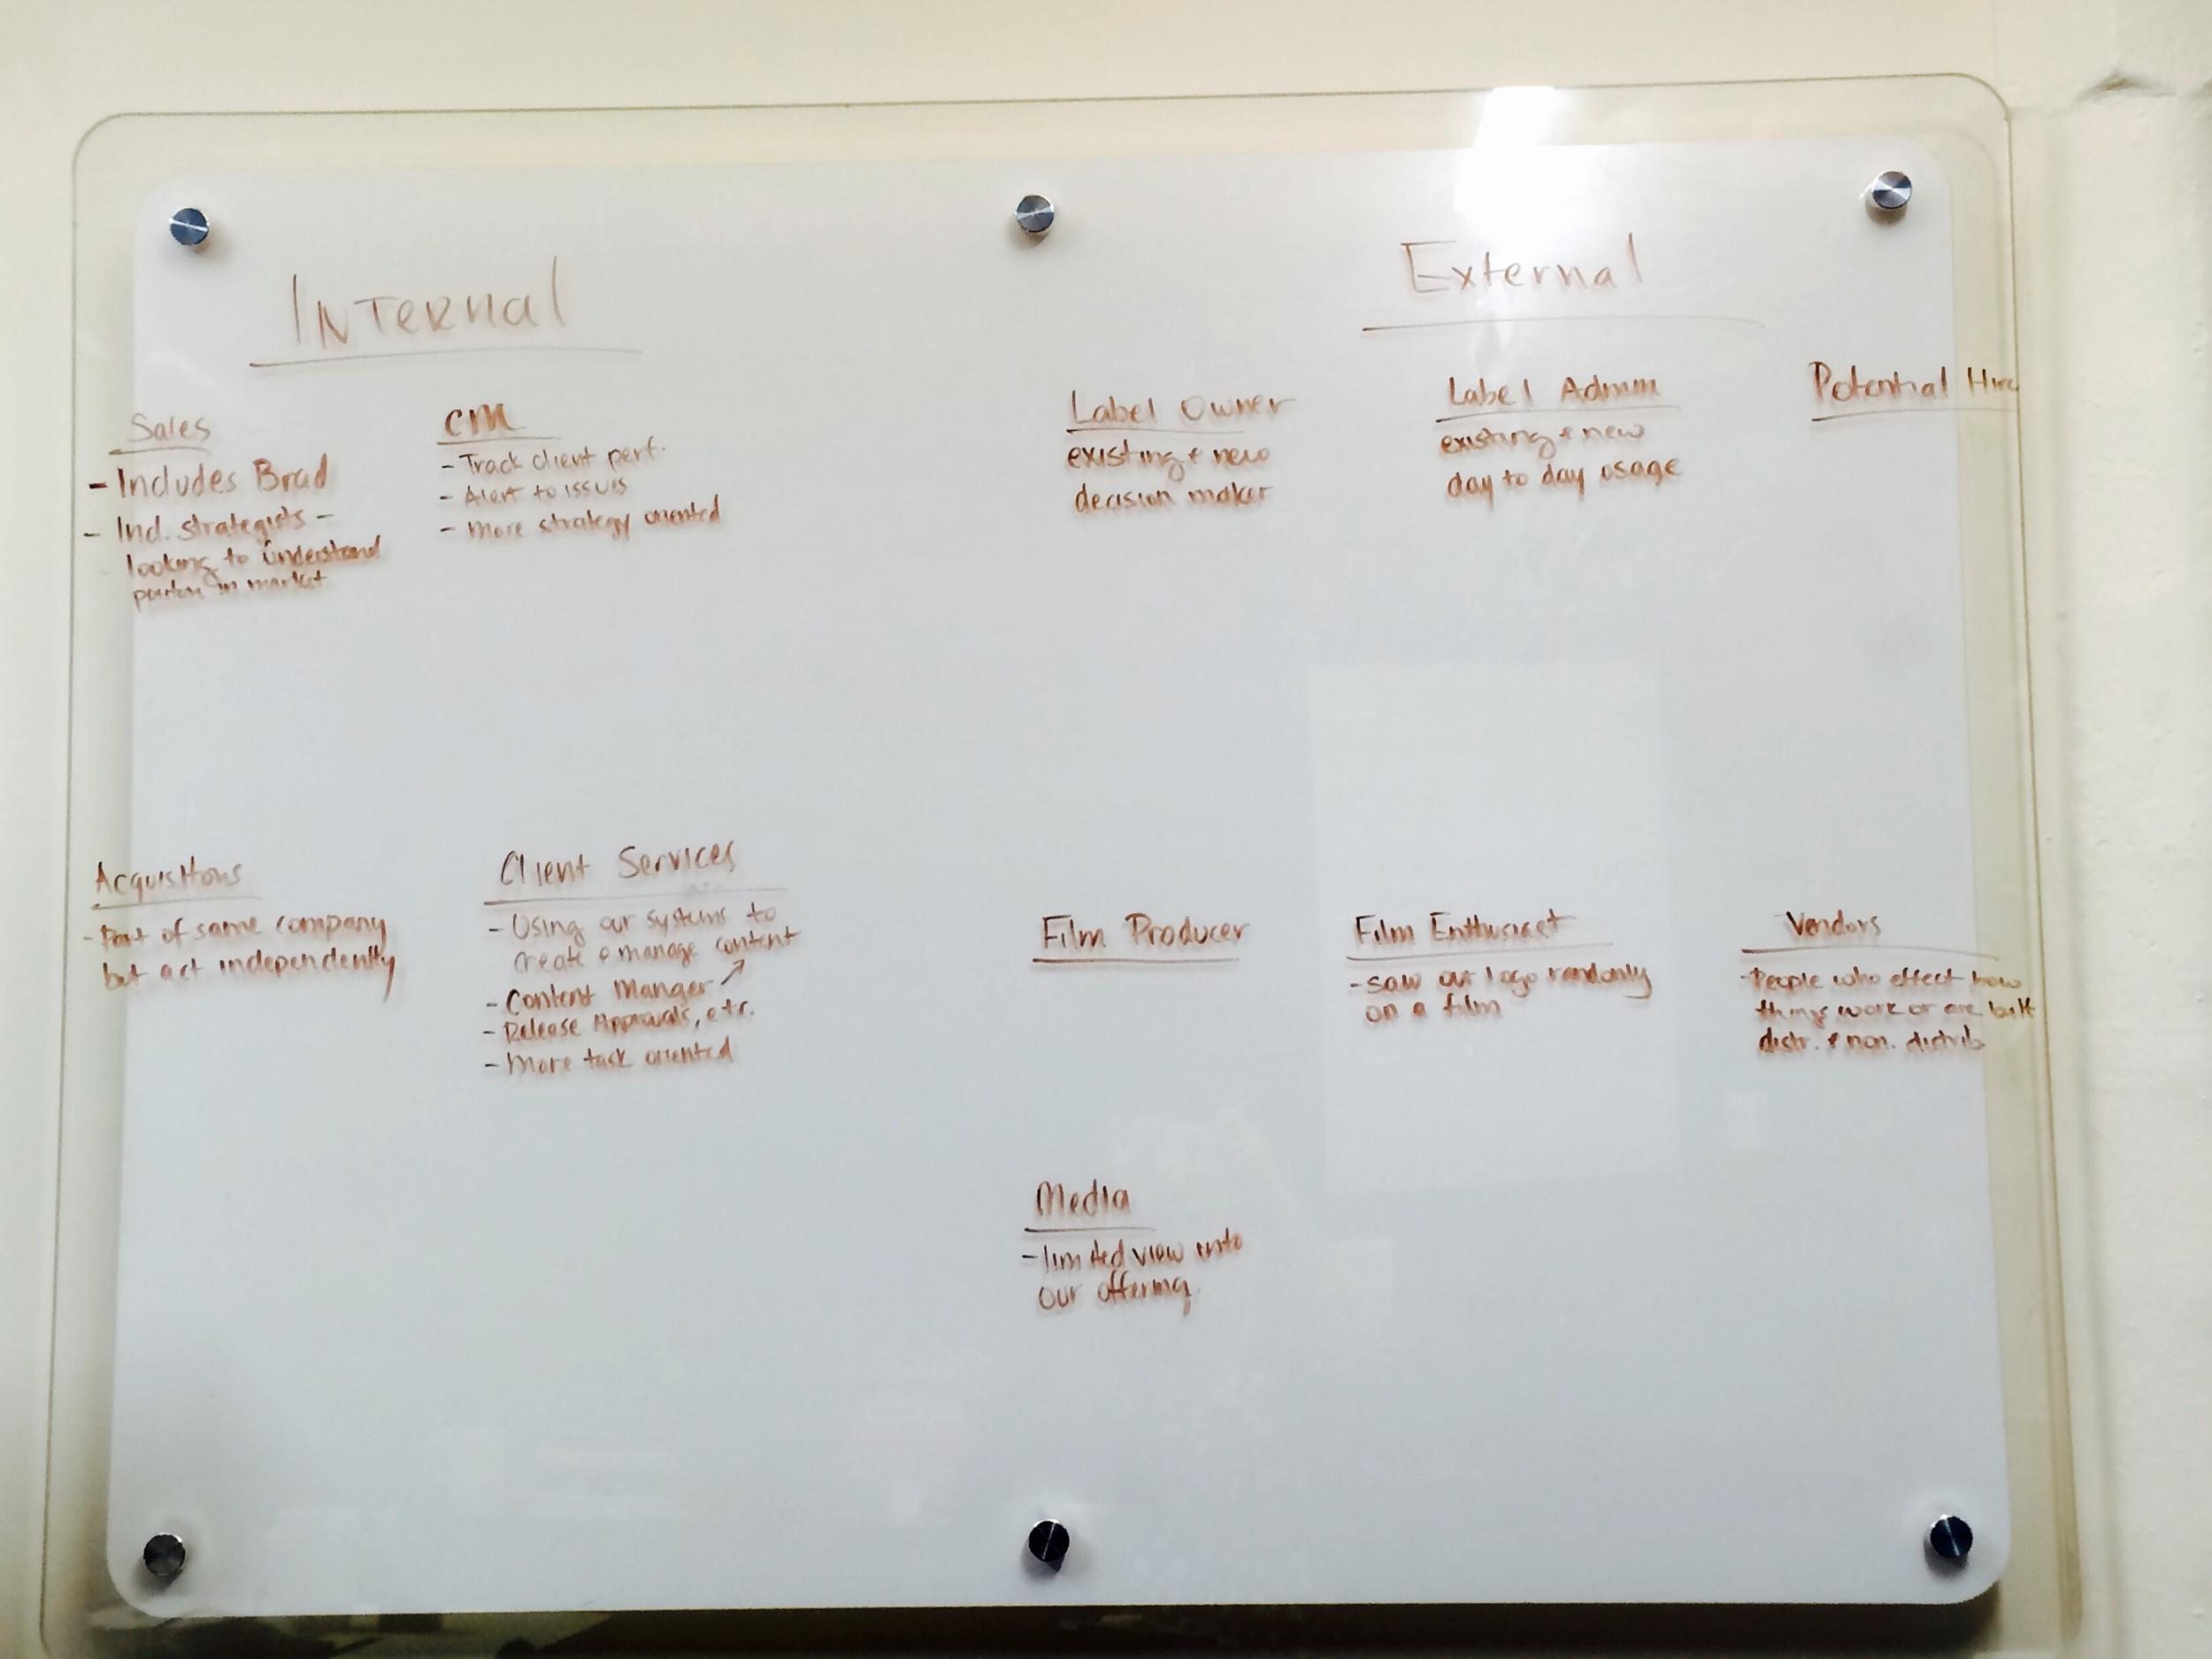 Internal
Sales
- Includes Brad
- Incl. strategists -
looking to understand
in market
cm
- Track client perf.
- Alert to issues
- More strategy oriented
Acquisitions
- Part of same company
but act independently
Client Services
- Using our systems to
create & manage content
- Content Manger ↗
- Release Approvals, etc.
- More task oriented
External
Label Owner
existing & new
decision maker
Label Admin
existing & new
day to day usage
Potential Hire
Film Producer
Film Enthusiast
- saw our logo randomly
on a film
Vendors
- People who effect how
things work or are built
distr. & non. distrib
Media
- limited view into
our offering.